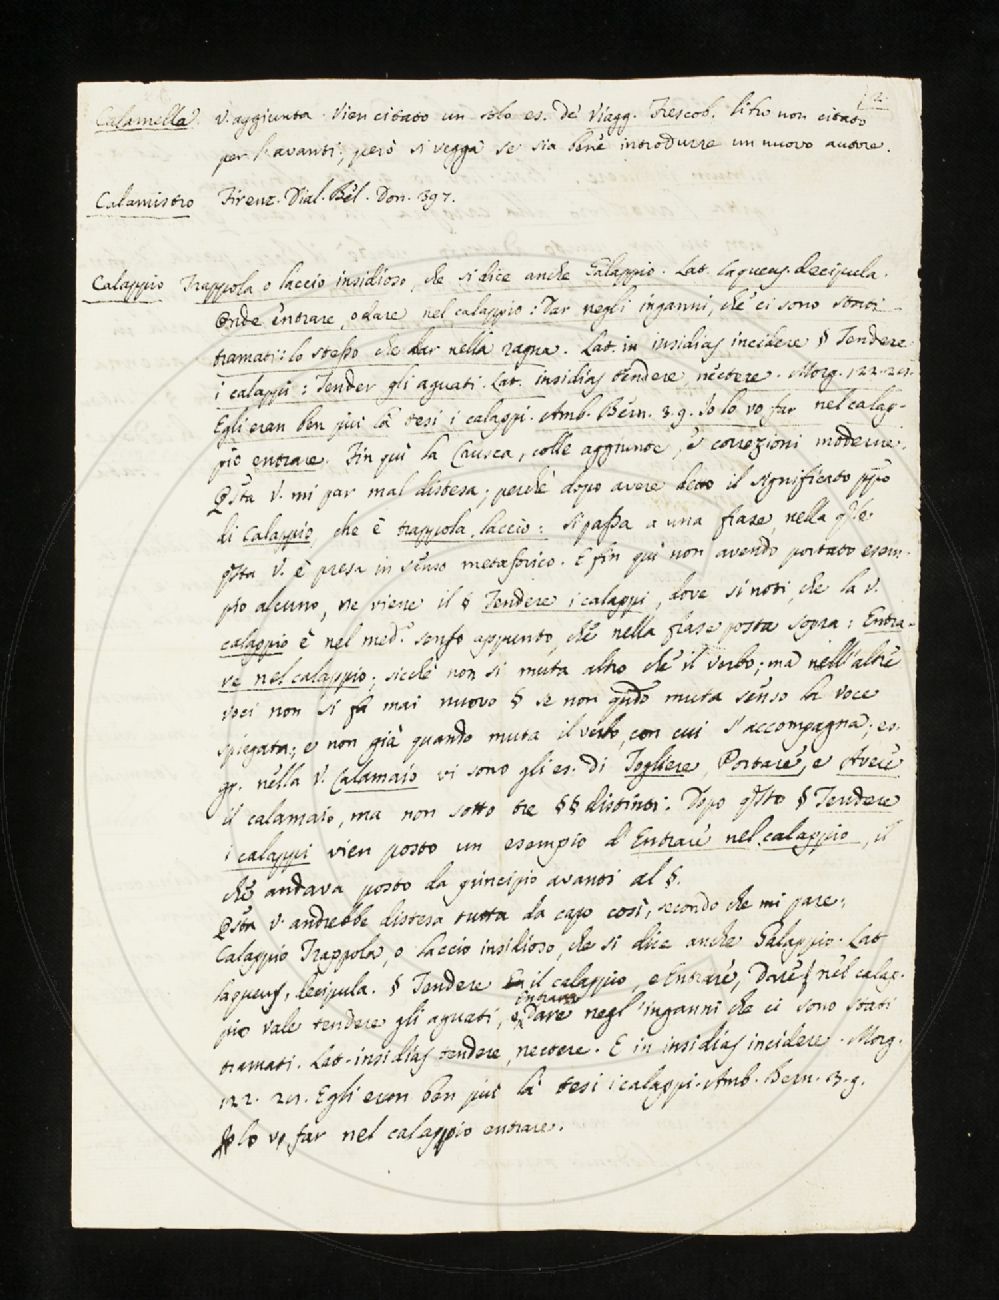 2.
Calamella. V. aggiunta. Vien citato un solo es. de' Viagg. Frescob. libro non citato
per l'avanti, però si vegga se sia bene introdurre un nuovo autore.
Calamistro Firenz. Dial. Bel. Don. 397.
Calappio Trappola o laccio insidioso, che si dice anche Galappio. Lat. laqueus, decipula.
Onde entrare, o dare nel calappio: Dar negli inganni, che ci sono stati
tramati: lo stesso che dar nella ragna. Lat. in insidias incidere § Tendere
i calappi: Tender gli aguati. Lat. insidias tendere, nectere. Morg. 122. 21.
Egli eran ben più là tesi i calappi. Amb. Bern. 3. 9. Io lo vo far nel calap-
pio entrare. Fin quì la Crusca, colle aggiunte, e correzioni moderne.
Qsta V. mi par mal distesa; perchè dopo avere detto il significato pppo
di Calappio, che è trappola, laccio: si passa a una frase, nella qle
qsta V. è presa in senso metaforico. E fin quì non avendo portato esem-
pio alcuno, ne viene il § Tendere i calappi, dove si noti, che la V.
calappio è nel med.o senso appunto, che nella frase posta sopra: Entra-
re nel calappio; sicchè non si muta altro che il verbo; ma nell'altre
voci non si fa mai nuovo § se non qndo muta senso la voce
spiegata; e non già quando muta il verbo, con cui s'accompagna; es.
gr. nella V. Calamaio vi sono gli es. di Togliere, Portare, e Avere
il calamaio, ma non sotto tre §§ distinti. Dopo qsto § Tendere
i calappi vien posto un esempio d'Entrare nel calappio, il
che andava posto da principio avanti al §.
Qsta V. andrebbe distesa tutta da capo così, secondo che mi pare.
Calappio Trappola, o laccio insidioso, che si dice anche Galappio. Lat
laqueus, decipula. § Tendere il calappio, e Entrare, Dare nel calap-
pio vale tendere gli aguati, e entrare, Dare negl'inganni che ci sono stati
tramati. Lat. insidias tendere, nectere. E in insidias incidere. Morg.
122. 21. Egli eron ben più là tesi i calappi. Amb. Bern. 3. 9.
Io lo vo far nel calappio entrare.